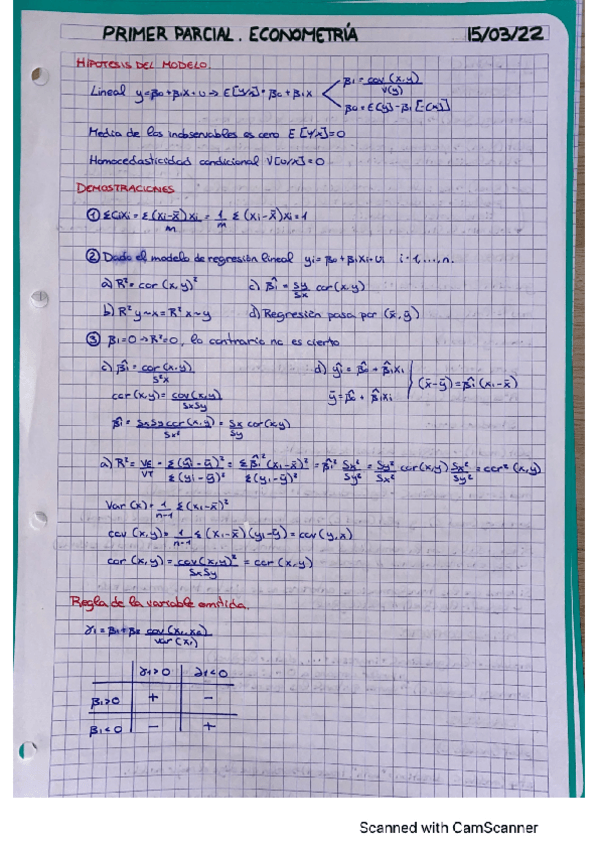 PRIMER PARCIAL. ECONOMETRÍA 15/03/22
HIPOTESIS DEL MODELO.
Lineal y=β0+β1X+U → E[Y/x]=β0+β1X
β1=cov(x,y)/V(y)
β0=E(y)-β1E(x)]
Media de los inobservables es cero E[Y/x]=0
Homocedasticidad condicional V[u/x]=0
DEMOSTRACIONES
① ΣCiXi = Σ(Xi-x̄)Xi/m = 1/m Σ(Xi-x̄)Xi=1
② Dado el modelo de regresión lineal yi=β0+β1Xi+Ui i=1,...,n.
a) R²=cor(x,y)² c) β̂1=Sy/Sx cor(x,y)
b) R²y~x=R²x~y d) Regresión pasa por (x̄,ȳ)
③ β1=0→R²=0, lo contrario no es cierto
c) β̂1=cor(x,y)/S²x d) ŷi=β̂0+β̂1Xi
cor(x,y)=cov(x,y)/SxSy ȳ=β̂0+β̂1Xi
(x̄-ȳ)=β̂1(Xi-x̄)
β̂1=SxSy cor(x,y)/Sx²=Sx/Sy cor(x,y)
a) R²=VE/VT=Σ(ŷi-ȳ)²/Σ(yi-ȳ)²=Σβ̂1²(Xi-x̄)²/Σ(yi-ȳ)²=β̂1² Sx²/Sy²=Sy²/Sx² cor(x,y) Sx²/Sy²=cor²(x,y)
Var(x)=1/n-1 Σ(Xi-x̄)²
cov(x,y)=1/n-1 Σ(Xi-x̄)(yi-ȳ)=cov(y,x)
cor(x,y)=cov(x,y)²/SxSy=cor(x,y)
Regla de la variable omitida.
γ1=β1+β2 cov(X1,X2)/var(X1)
γ1>0 γ1<0
β1>0 + -
β1<0 - +
Scanned with CamScanner